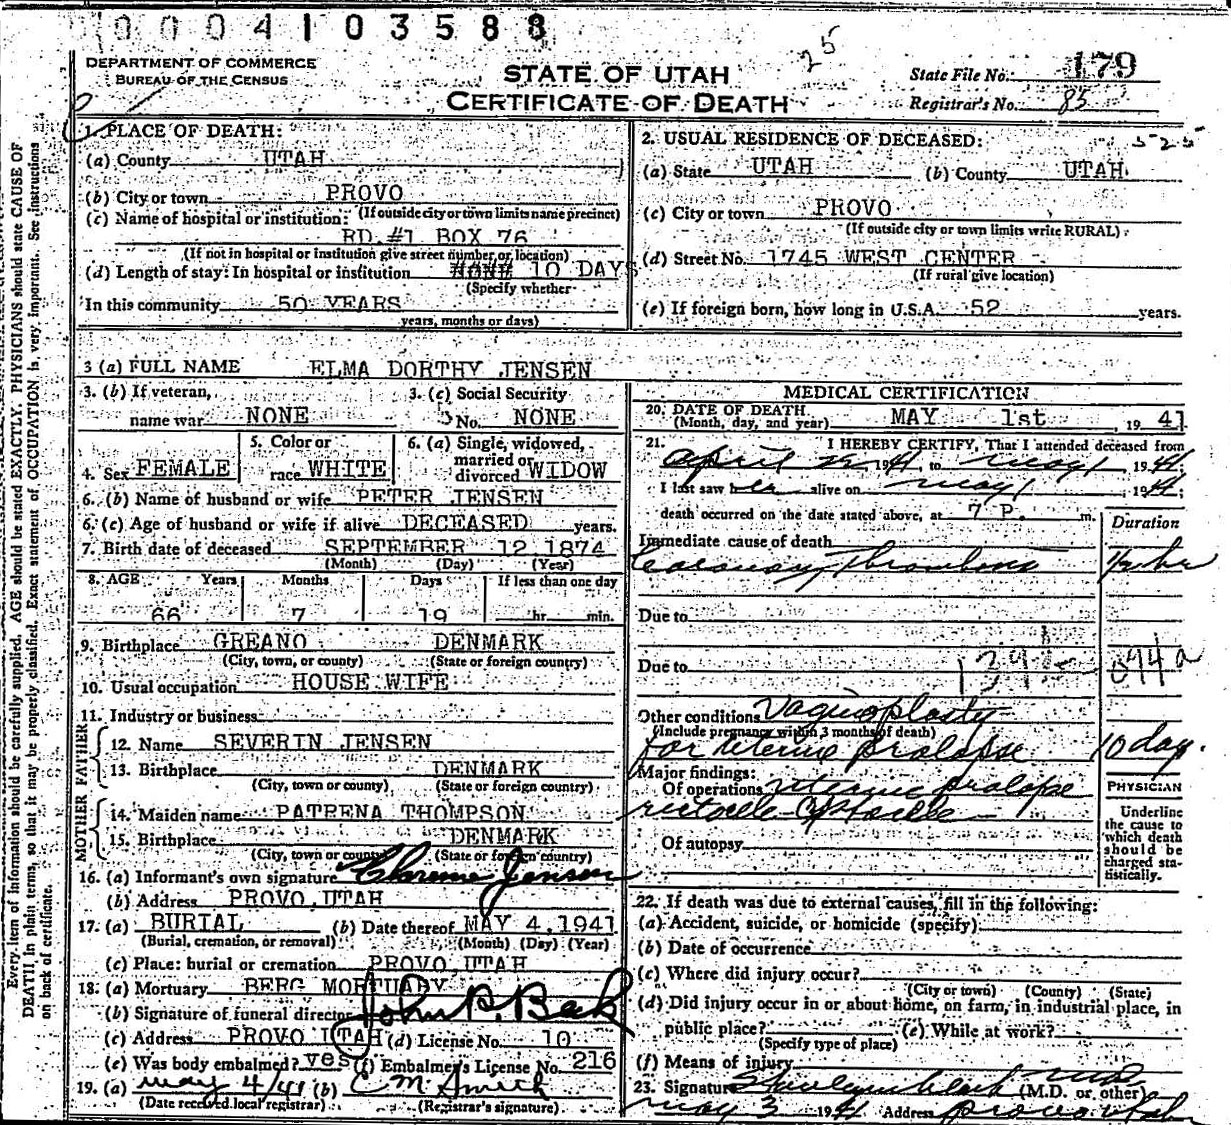 0004103588
DEPARTMENT OF COMMERCE
BUREAU OF THE CENSUS
STATE OF UTAH
CERTIFICATE OF DEATH
25
State File No. 179
Registrar's No. 85
1. PLACE OF DEATH:
(a) County UTAH
(b) City or town PROVO
(If outside city or town limits name precinct)
(c) Name of hospital or institution:
RD #1 BOX 76
(If not in hospital or institution give street number or location)
(d) Length of stay: In hospital or institution 10 DAYS
(Specify whether
In this community 50 YEARS
years, months or days)
2. USUAL RESIDENCE OF DECEASED: 525
(a) State UTAH (b) County UTAH
(c) City or town PROVO
(If outside city or town limits write RURAL)
(d) Street No. 1745 WEST CENTER
(If rural give location)
(e) If foreign born, how long in U.S.A. 52 years.
3 (a) FULL NAME ELMA DORTHY JENSEN
3. (b) If veteran, name war NONE
3. (c) Social Security No. NONE
4. Sex FEMALE
5. Color or race WHITE
6. (a) Single, widowed, married or divorced WIDOW
6. (b) Name of husband or wife PETER JENSEN
6. (c) Age of husband or wife if alive DECEASED years.
7. Birth date of deceased SEPTEMBER 12 1874
(Month) (Day) (Year)
8. AGE Years Months Days If less than one day
66 7 19 hr. min.
9. Birthplace GREANO DENMARK
(City, town, or county) (State or foreign country)
10. Usual occupation HOUSE WIFE
11. Industry or business
FATHER
12. Name SEVERIN JENSEN
13. Birthplace DENMARK
(City, town or county) (State or foreign country)
MOTHER
14. Maiden name PATRENA THOMPSON
15. Birthplace DENMARK
(City, town or county) (State or foreign country)
16. (a) Informant's own signature Clarence Jensen
(b) Address PROVO UTAH
17. (a) BURIAL (b) Date thereof MAY 4, 1941
(Burial, cremation, or removal) (Month) (Day) (Year)
(c) Place: burial or cremation PROVO, UTAH
18. (a) Mortuary BERG MORTUARY
(b) Signature of funeral director John P. Beck
(c) Address PROVO UTAH (d) License No. 10
(e) Was body embalmed? yes (f) Embalmer's License No. 216
19. (a) May 4/41 (b) C M Smith
(Date received local registrar) (Registrar's signature)
MEDICAL CERTIFICATION
20. DATE OF DEATH MAY 1st, 1941
(Month, day, and year)
21. I HEREBY CERTIFY, That I attended deceased from
april 22 1941, to may 1 1941;
I last saw her alive on may 1 1941;
death occurred on the date stated above, at 7 P. m.
Duration
Immediate cause of death
Coronary Thrombosis 1/2 hr
Due to
Due to
094a
Other conditions Vaginoplasty
(Include pregnancy within 3 months of death)
for uterine prolapse 10 day.
Major findings:
Of operations uterine prolapse
rectocele - Cystocele
Of autopsy
PHYSICIAN
Underline the cause to which death should be charged statistically.
22. If death was due to external causes, fill in the following:
(a) Accident, suicide, or homicide (specify)
(b) Date of occurrence
(c) Where did injury occur?
(City or town) (County) (State)
(d) Did injury occur in or about home, on farm, in industrial place, in
public place? (e) While at work?
(Specify type of place)
(f) Means of injury
23. Signature (M.D. or other)
may 3 1941 Address provo utah
Every item of information should be carefully supplied. AGE should be stated EXACTLY. PHYSICIANS should state CAUSE OF
DEATH in plain terms, so that it may be properly classified. Exact statement of OCCUPATION is very important. See instructions
on back of certificate.